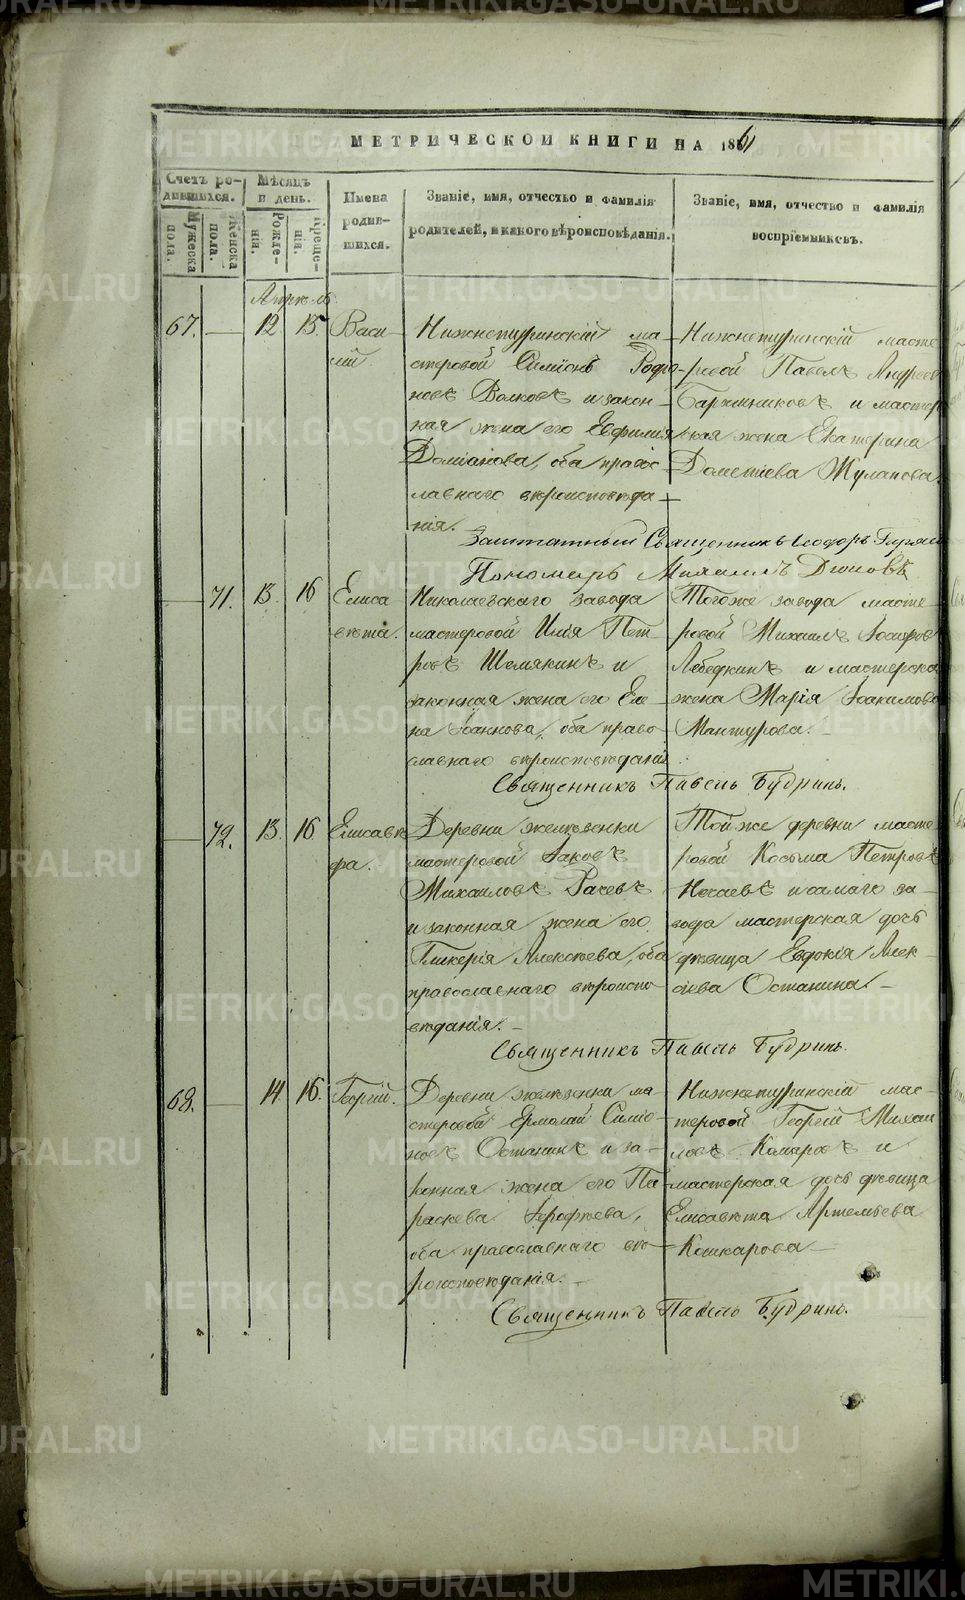 МЕТРИЧЕСКОЙ КНИГИ НА 1861
Счетъ родившихся.
Мужеска пола.
Женска пола.
Мѣсяцъ и день.
Рожденія.
Крещенія.
Имена родившихся.
Званіе, имя, отчество и фамилія родителей, и какого вѣроисповѣданія.
Званіе, имя, отчество и фамилія воспріемниковъ.
Апрѣль
67. — 12 15 Васи-
лій
Нижнетуринскій ма-
стеровой Симіонъ Родіо-
новъ Волковъ и закон-
ная жена его Евфимія
Даміанова, оба правос-
лавнаго вѣроисповѣда-
нія.
Нижнетуринскій масте-
ровой Павелъ Андреевъ
и мастер-
ская жена Екатерина
Дометіева Жуланова.
Заштатный Священникъ Ѳеодоръ
Пономарь Михаилъ
— 71. 13 16 Елиса
вета.
Николаевскаго завода
мастеровой Илія Пет-
ровъ Шемякинъ и
законная жена его Еле-
на Іоаннова, оба право-
славнаго вѣроисповѣданія
Тогоже завода масте-
ровой Михаилъ Іосифовъ
Лебедкинъ и мастерска
жена Марія Іоакимова
Мантурова.
Священникъ Павелъ Будринъ.
— 72. 13 16 Елисаве
фа.
Деревни желѣзенки
мастеровой Іаковъ
Михаиловъ Рачевъ
и законная жена его
Гликерія Алексѣева, оба
православнаго вѣроиспо-
вѣданія. —
Той же деревни масте-
ровой Косьма Петровъ
Несаевъ и самаго за-
вода мастерская дочь
дѣвица Евдокія Алек-
сіева Останина. —
Священникъ Павелъ Будринъ.
68. — 14 16. Георгій.
Деревни желѣзенки ма-
стеровой Ермолай Симіо-
новъ Останинъ и за-
конная жена его Па-
раскева Іерофѣева,
оба православнаго вѣ-
роисповѣданія. —
Нижнетуринскій мас-
теровой Георгій Михаи
ловъ Комаровъ и
мастерская дочь дѣвица
Елисавета Артемьева
Кошкарова —
Священникъ Павелъ Будринъ.
METRIKI.GASO-URAL.RU